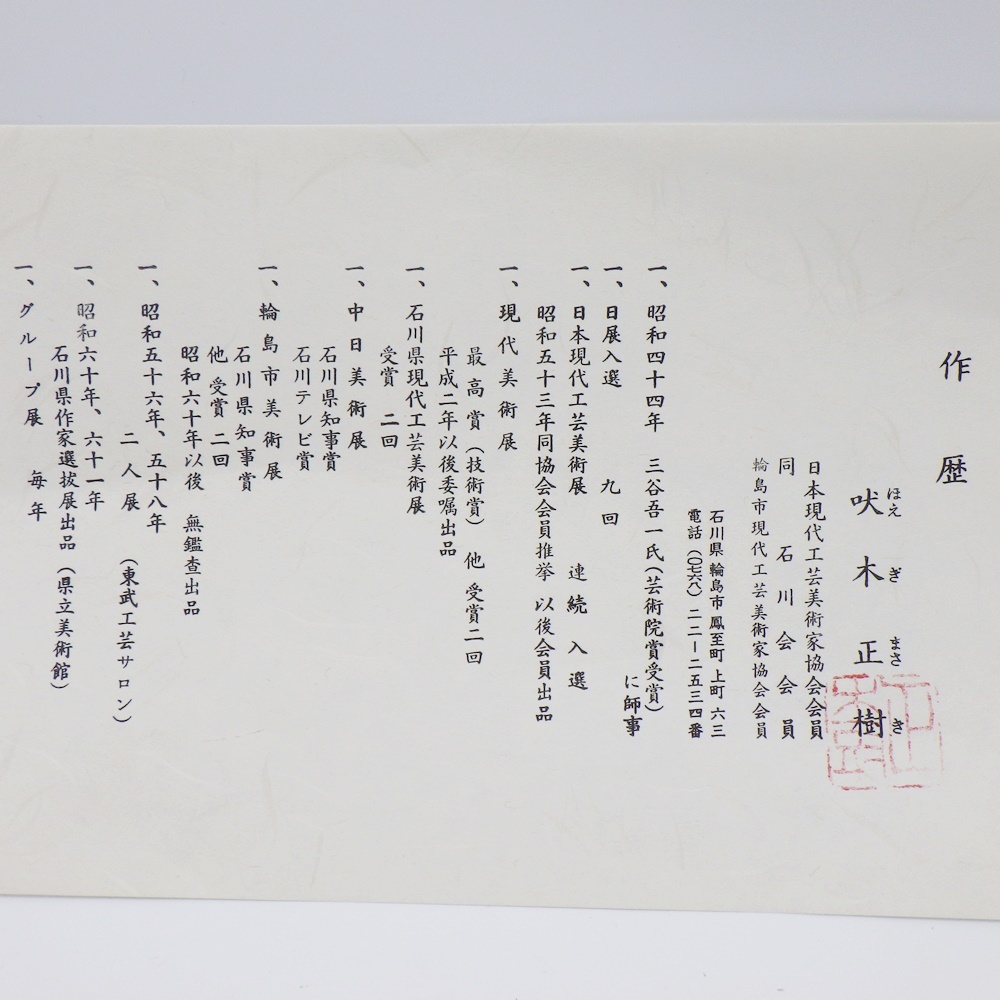 作歴
吠木正樹
ほえぎまさき
日本現代工芸美術家協会会員
同石川会会員
輪島市現代工芸美術家協会会員
石川県輪島市鳳至町上町六三
電話(〇七六八)二二ー二五三四番
一、昭和四十四年 三谷吾一氏(芸術院賞受賞)
に師事
一、日展入選 九回
一、日本現代工芸美術展 連続入選
昭和五十三年同協会会員推挙 以後会員出品
一、現代美術展
最高賞(技術賞) 他 受賞二回
平成二年以後委嘱出品
一、石川県現代工芸美術展
受賞 二回
一、中日美術展
石川県知事賞
石川テレビ賞
一、輪島市美術展
石川県知事賞
他受賞 二回
昭和六十年以後 無鑑査出品
一、昭和五十六年、五十八年
二人展 (東武工芸サロン)
一、昭和六十年、六十一年
石川県作家選抜展出品(県立美術館)
一、グループ展 毎年